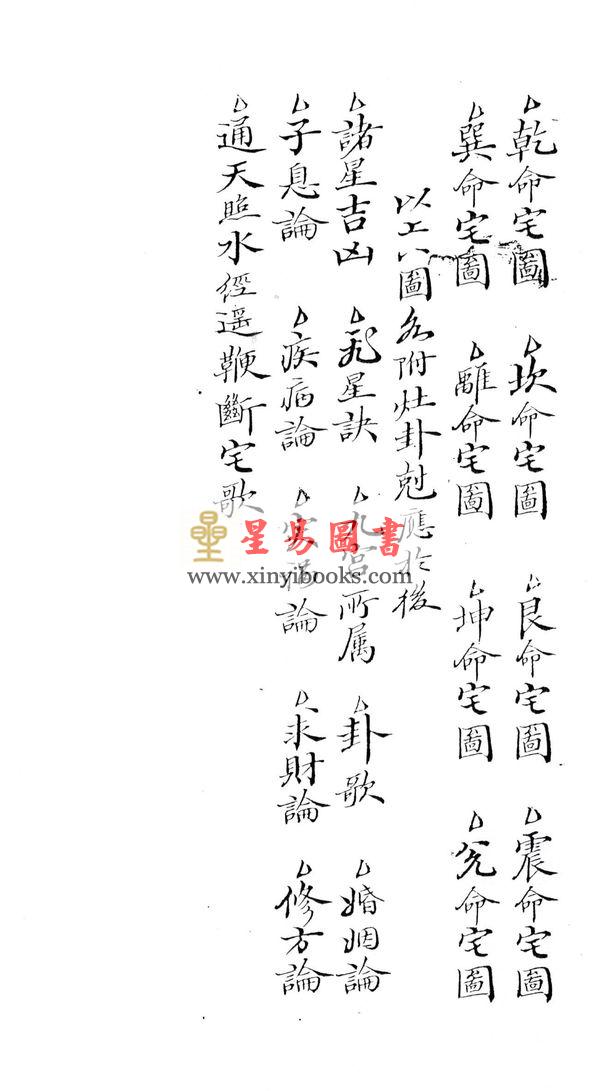 乾命宅圖 坎命宅圖 艮命宅圖 震命宅圖
巽命宅圖 離命宅圖 坤命宅圖 兌命宅圖
以上八圖各附灶卦尅應於後
諸星吉凶 飛星訣 九宮所属 卦歌 婚姻論
子息論 疾病論 論 求財論 修方論
通天照水經遥鞭斷宅歌
星易圖書
www.xinyibooks.com